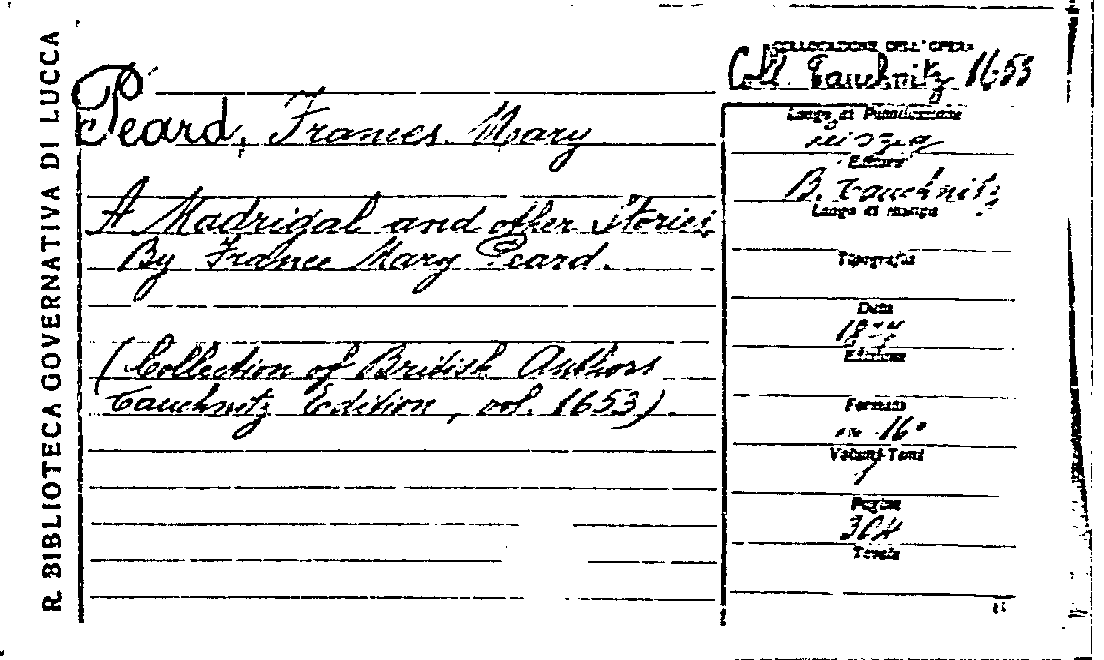 R. BIBLIOTECA GOVERNATIVA DI LUCCA
Peard, Frances Mary
A Madrigal and other Stories
By France Mary Peard.
(Collection of British Authors
Tauchnitz Edition, vol. 1653).
COLLOCAZIONE DELL'OPERA
Coll. Tauchnitz 1653
Luogo di Pubblicazione
Editore
B. Tauchnitz
Luogo di stampa
Tipografia
Data
Edizione
Formato
in 16°
Volumi-Tomi
1
Pagine
304
Tavole